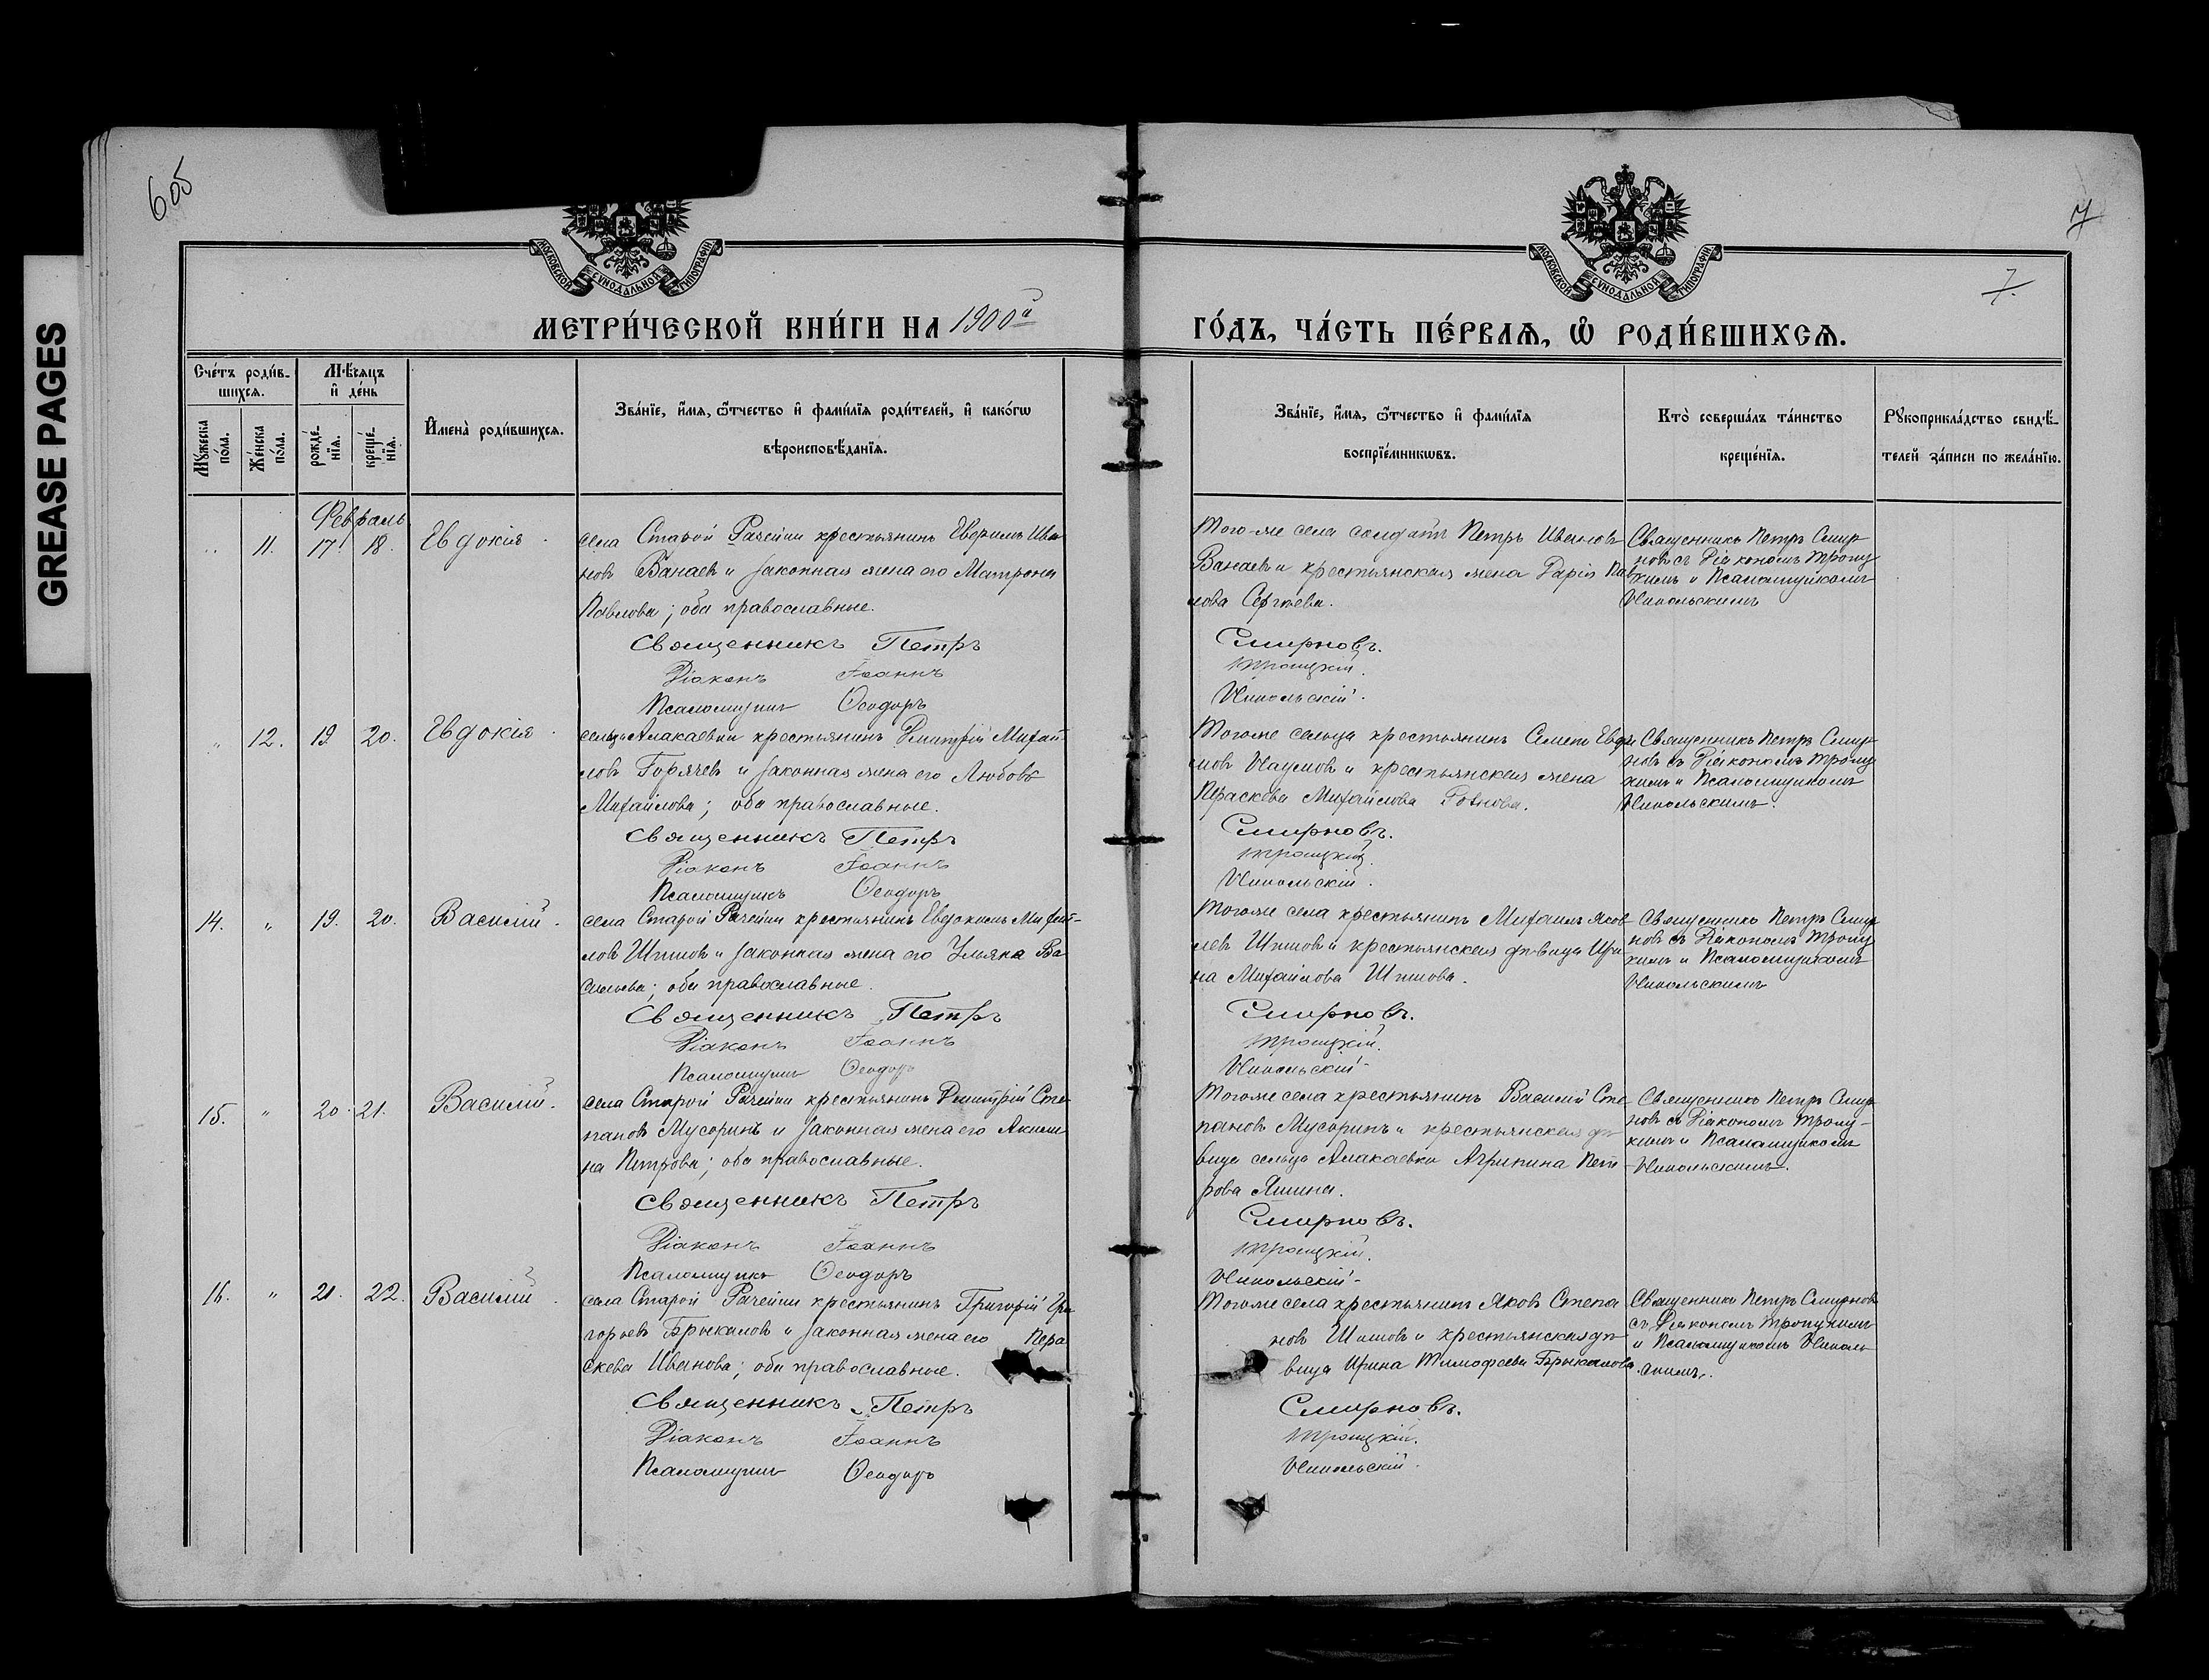 GREASE PAGES
605
7
7.
МОСКОВСКОЙ СѴНОДАЛЬНОЙ ТИПОГРАФІИ.
МОСКОВСКОЙ СѴНОДАЛЬНОЙ ТИПОГРАФІИ.
МЕТРИ́ЧЕСКОЙ КНИ́ГИ НА 1900й
ГО́ДЪ, ЧА́СТЬ ПЕ́РВАѦ, Ѡ҆ РОДИ́ВШИХСѦ.
Сче́тъ роди́в-
шихсѧ.
Мꙋ́жеска
по́ла.
Же́нска
по́ла.
Мѣ́сѧцъ
и҆ де́нь
рожде́-
нїѧ.
креще́-
нїѧ.
И҆мена̀ роди́вшихсѧ.
Зва́нїе, и҆́мѧ, ѻ҆́тчество и҆ фами́лїѧ роди́телей, и҆ како́гѡ
вѣроисповѣ́данїѧ.
Зва́нїе, и҆́мѧ, ѻ҆́тчество и҆ фами́лїѧ
воспрїе́мникѡвъ.
Кто̀ соверша́лъ та́инство
креще́нїѧ.
Рꙋкоприкла́дство свидѣ́-
телей за́писи по жела́нїю.
Февраль
" 11. 17. 18. Евдокія.
села Старой Рачейки крестьянинъ Евфимъ Ива
новъ Ванаевъ и законная жена его Матрона
Павлова; оба православные.
Священникъ Петръ
Діаконъ Іоаннъ
Псаломщикъ Ѳеодоръ
Того-же села солдатъ Петръ Ивановъ
Ванаевъ и крестьянская жена Дарія Пав
лова Сергѣева.
Смирновъ.
Троицкій.
Никольскій.
Священникъ Петръ Смир
новъ съ Діакономъ Троиц
кимъ и Псаломщикомъ
Никольскимъ
" 12. 19. 20. Евдокія.
сельца Алакаевки крестьянинъ Димитрій Михай
ловъ Горячевъ и законная жена его Любовь
Михайлова; оба православные.
Священникъ Петръ
Діаконъ Іоаннъ
Псаломщикъ Ѳеодоръ
Тогоже сельца крестьянинъ Симеонъ Евфи
мовъ Наумовъ и крестьянская жена
Параскева Михайлова
Смирновъ.
Троицкій.
Никольскій.
Священникъ Петръ Смир
новъ съ Діакономъ Троиц
кимъ и Псаломщикомъ
Никольскимъ.
14. " 19. 20. Василій.
села Старой Рачейки крестьянинъ Евдокимъ Михай-
ловъ Шишовъ и законная жена его Ульяна Ва
сильева; оба православные.
Священникъ Петръ
Діаконъ Іоаннъ
Псаломщикъ Ѳеодоръ
Тогоже села крестьянинъ Михаилъ Яков
левъ Шишовъ и крестьянская дѣвица Ири
на Михайлова Шишова.
Смирновъ.
Троицкій.
Никольскій-
Священникъ Петръ Смир
новъ съ Діакономъ Троиц
кимъ и Псаломщикомъ
Никольскимъ
15. " 20. 21. Василій.
села Старой Рачейки крестьянинъ Димитрій Сте
пановъ Мусоринъ и законная жена его Акили
на Петрова; оба православные.
Священникъ Петръ
Діаконъ Іоаннъ
Псаломщикъ Ѳеодоръ
Тогоже села крестьянинъ Василій Сте
пановъ Мусоринъ и крестьянская дѣ
вица сельца Алакаевки Агрипина Пет
рова Яшина.
Смирновъ.
Троицкій.
Никольскій-
Священникъ Петръ Смир
новъ съ Діакономъ Троиц-
кимъ и Псаломщикомъ
Никольскимъ.
16. " 21. 22. Василій.
села Старой Рачейки крестьянинъ Григорій Гри
горьевъ Брыкаловъ и законная жена его Пара
скева Иванова; оба православные.
Священникъ Петръ
Діаконъ Іоаннъ
Псаломщикъ Ѳеодоръ
Тогоже села крестьянинъ Яковъ Степа
новъ Шишовъ и крестьянская дѣ
вица Ирина Тимофеева Брыкалова
Смирновъ.
Троицкій.
Никольскій.
Священникъ Петръ Смирновъ
съ Діакономъ Троицкимъ
и Псаломщикомъ Николь
скимъ.